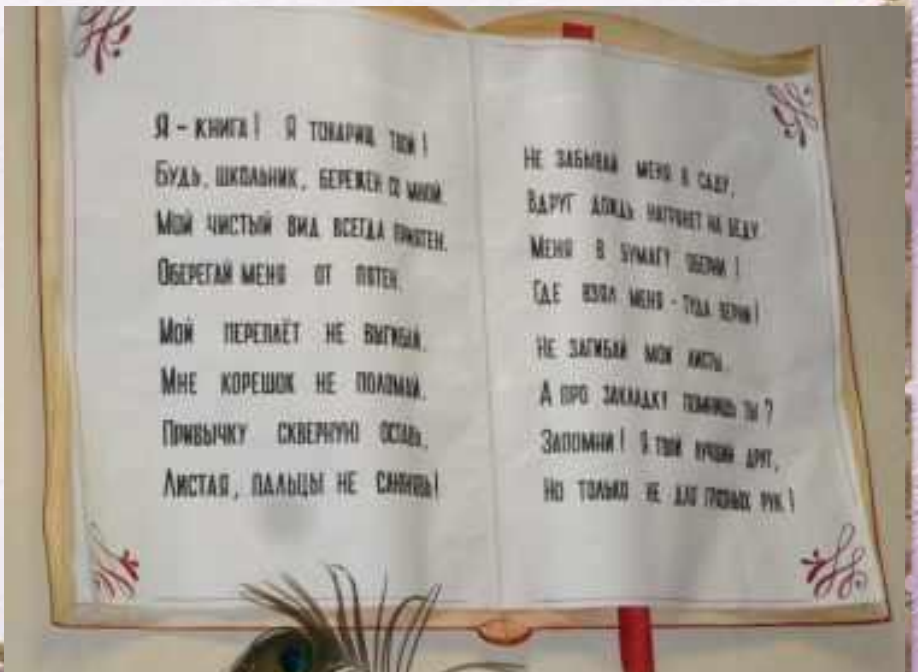 Я - КНИГА! Я ТОВАРИЩ ТВОЙ!
БУДЬ, ШКОЛЬНИК, БЕРЕЖЕН СО МНОЙ.
МОЙ ЧИСТЫЙ ВИД ВСЕГДА ПРИЯТЕН.
ОБЕРЕГАЙ МЕНЯ ОТ ПЯТЕН.
МОЙ ПЕРЕПЛЁТ НЕ ВЫГИБАЙ.
МНЕ КОРЕШОК НЕ ПОЛОМАЙ.
ПРИВЫЧКУ СКВЕРНУЮ ОСТАВЬ,
ЛИСТАЯ, ПАЛЬЦЫ НЕ СЛЮНЯВЬ!
НЕ ЗАБЫВАЙ МЕНЯ В САДУ,
ВДРУГ ДОЖДЬ НАГРЯНЕТ НА БЕДУ.
МЕНЯ В БУМАГУ ОБЕРНИ!
ГДЕ ВЗЯЛ МЕНЯ - ТУДА ВЕРНИ!
НЕ ЗАГИБАЙ МОИ ЛИСТЫ.
А ПРО ЗАКЛАДКУ ПОМНИШЬ ТЫ?
ЗАПОМНИ! Я ТВОЙ ЛУЧШИЙ ДРУГ,
НО ТОЛЬКО НЕ ДЛЯ ГРЯЗНЫХ РУК!